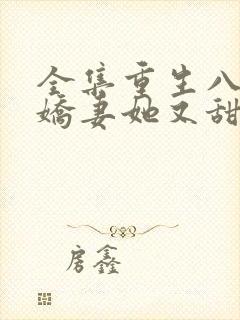 全集重生八
娇妻她又甜
房鑫